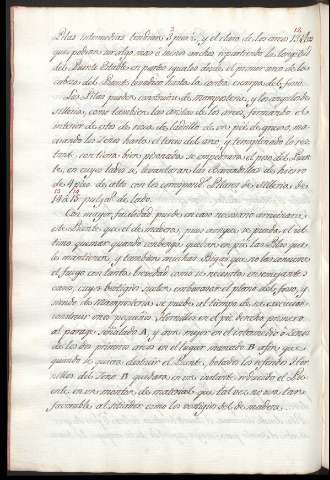 Pilas intermedias tendrán 3 pies ½, y el claro de los arcos 12
que podran ser algo mas ó menos anchos repartiendo la longitud
del Puente Estable en partes iguales desde el primer arco de la
cabeza del Puente levadizo hasta la contra escarpa del foso.
Las Pilas pueden construirse de Mamposteria, y los angulos de
silleria; como tambien las cintas de los arcos, formando el
interior de estos de rosca de ladrillo de un pie de grueso, ma
cizando los Senos hasta el tercio del arco, y terraplenando lo res
tante con tierra bien pisonada se empedrará el piso del Puen
te, en cuyos lados se levantaran las Barandillas de hierro
de 4 pies de alto con los correspond.tes Pilares de Silleria de
14 á 15 pulgad.s de lado.
Con mayor facilidad puede en caso necesario arruinarse
este Puente que el de madera, pues aunque se pueda el úl
timo quemar quando convenga quedan en pie las Pilas que
le mantienen, y tambien muchas Bigas que no las consume
el fuego con tanta brevedad como se necesita en semejante
caso, cuyos vestigios suelen embarazar el plano del foso, y
siendo de Mamposteria se puede al tiempo de su execucion
construir unos pequeños Hornillos en el pie derecho primero
al parage señalado A, y otro mejor en el intermedio ó Seno
de los dos primeros arcos en el lugar marcado B afin que
quando se quiera destruir el Puente, bolados los referidos Hor
nillos del Seno B quedara en un instante arruinado el Pu
ente, en un monton de materiales que tal vez no sera tan
favorable al sitiador como los vestigios del de madera.